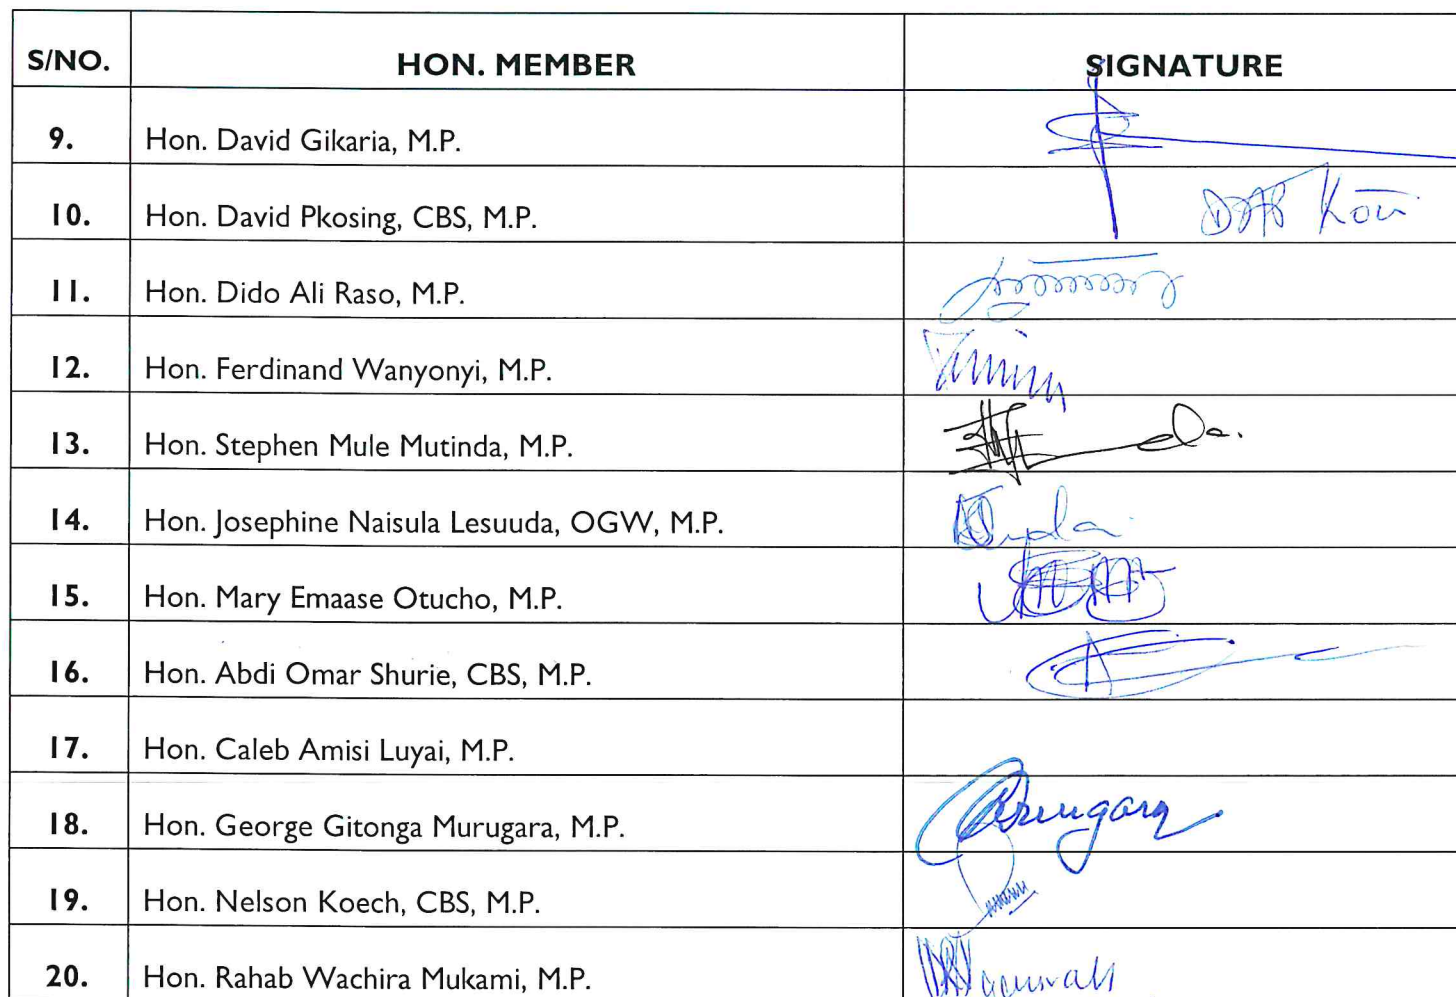 S/NO. HON. MEMBER SIGNATURE
9. Hon. David Gikaria, M.P.
10. Hon. David Pkosing, CBS, M.P.
11. Hon. Dido Ali Raso, M.P.
12. Hon. Ferdinand Wanyonyi, M.P.
13. Hon. Stephen Mule Mutinda, M.P.
14. Hon. Josephine Naisula Lesuuda, OGW, M.P.
15. Hon. Mary Emaase Otucho, M.P.
16. Hon. Abdi Omar Shurie, CBS, M.P.
17. Hon. Caleb Amisi Luyai, M.P.
18. Hon. George Gitonga Murugara, M.P.
19. Hon. Nelson Koech, CBS, M.P.
20. Hon. Rahab Wachira Mukami, M.P.